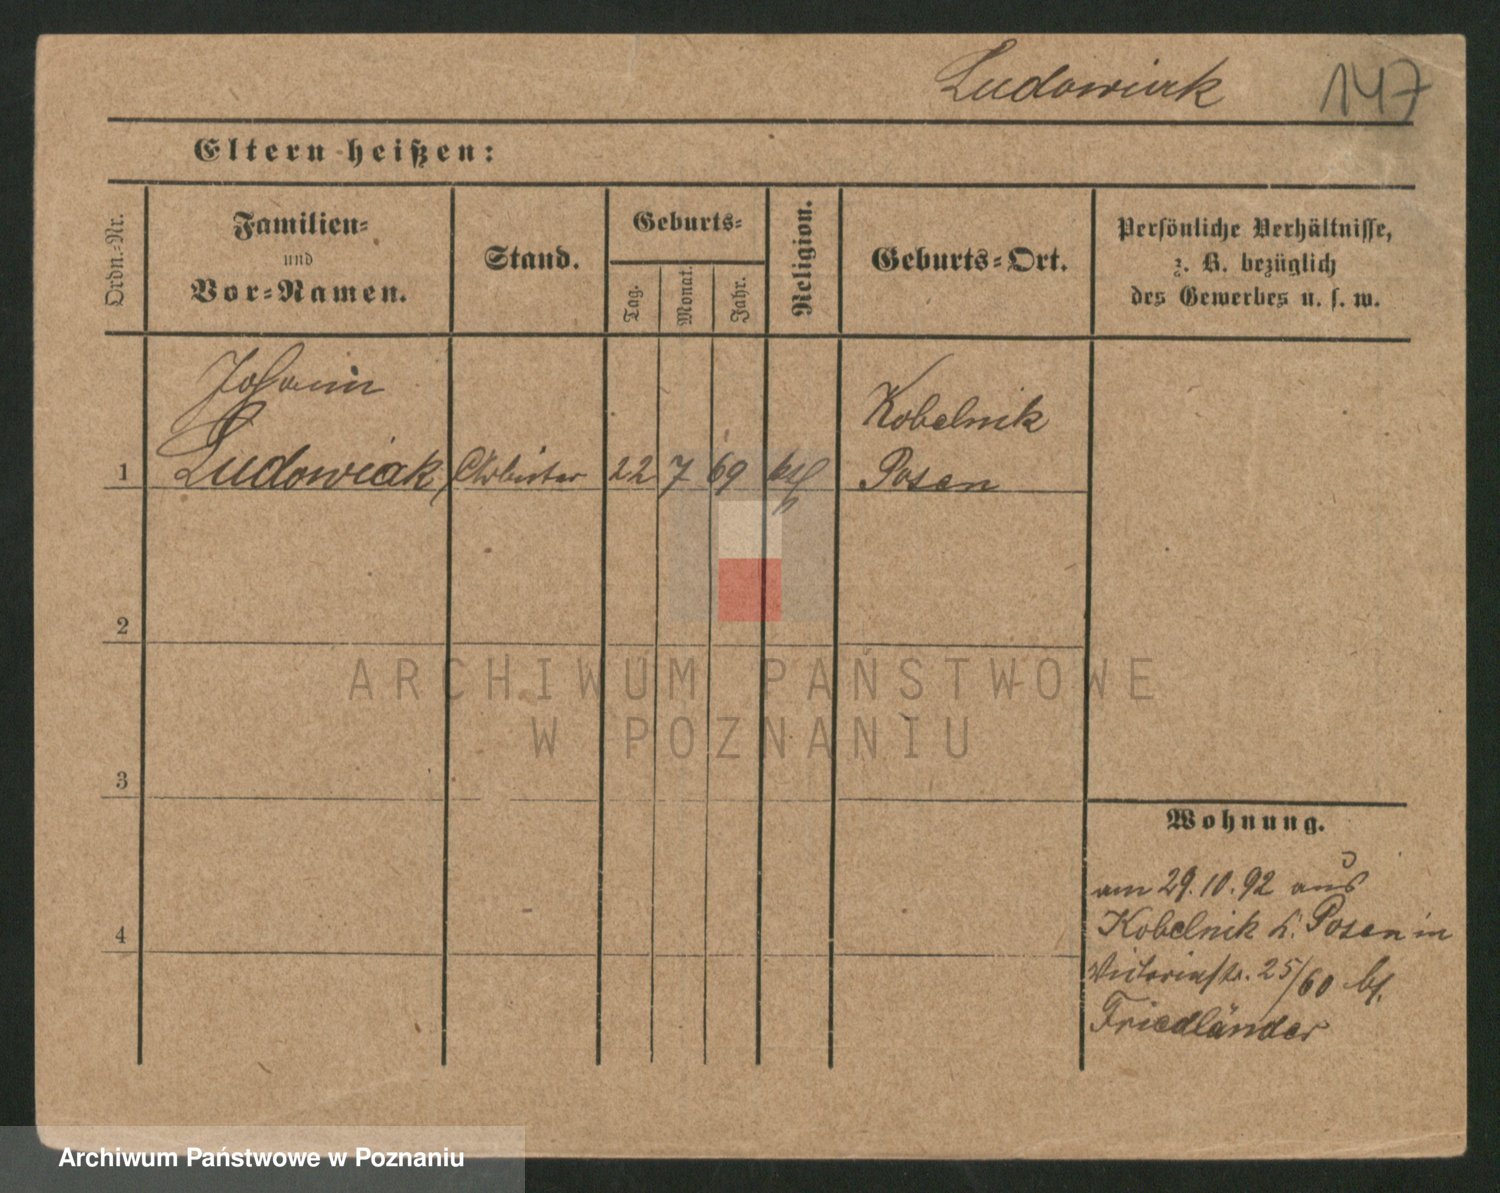 Ludowiak 147
Eltern heißen:
Ordn.-Nr.
Familien-
und
Vor-Namen.
Stand.
Geburts-
Tag.
Monat.
Jahr.
Religion.
Geburts-Ort.
Persönliche Verhältnisse,
z. B. bezüglich
des Gewerbes u. s. w.
Johann
Kobelnik
1 Ludowiak Arbeiter 22 7 69 kth Posen
2
3
4
Wohnung.
am 29.10.92 aus
Kobelnik K. Posen in
Victoriastr. 25/60 bf.
Friedländer
ARCHIWUM PAŃSTWOWE
W POZNANIU
Archiwum Państwowe w Poznaniu